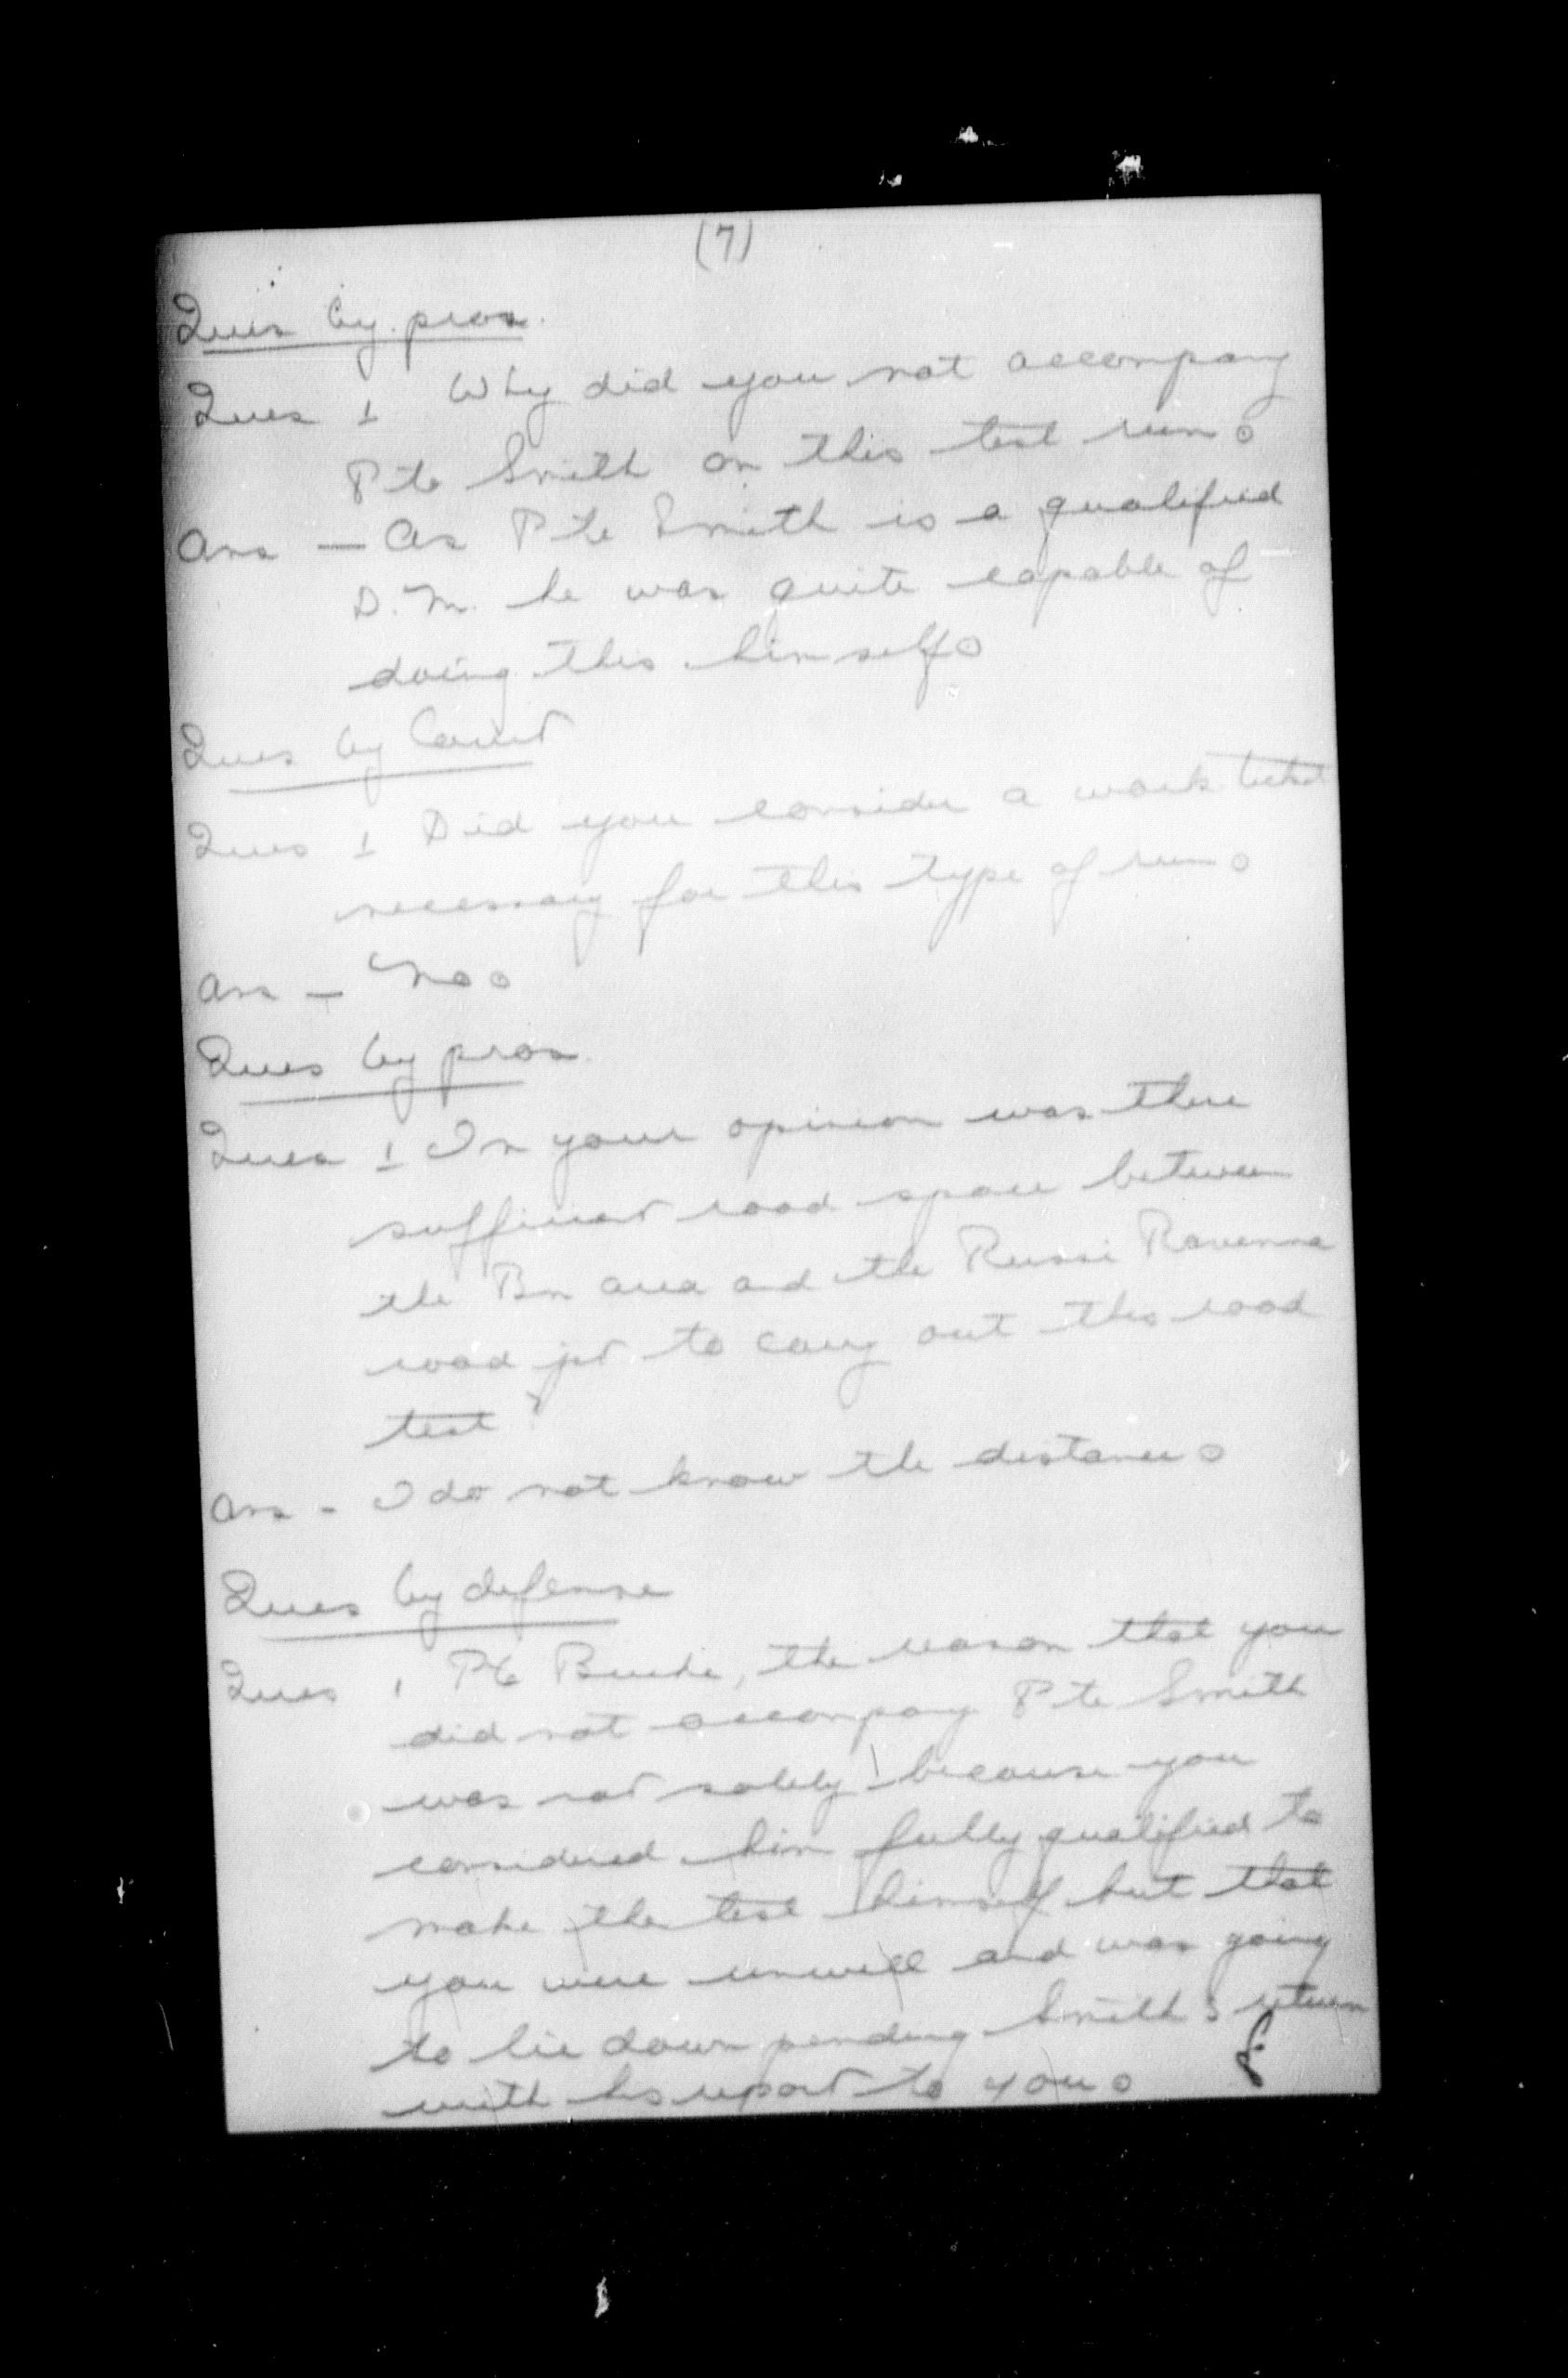 (7)
Ques by pros.
Ques 1 Why did you not accompany
Pte Smith on this test run.
Ans — As Pte Smith is a qualified
D.M. he was quite capable of
doing this himself.
Ques by Court
Ques 1 Did you consider a work ticket
necessary for this type of run.
Ans — No.
Ques by pros.
Ques 1 In your opinion was there
sufficient road space between
the Bn area and the Russi Ravenna
road jct to carry out this road
test?
Ans - I do not know the distance.
Ques by defense
Ques 1 Pte Burke, the reason that you
did not accompany Pte Smith
was not solely because you
considered him fully qualified to
make the test himself but that
you were unwell and was going
to lie down pending Smith's return
with his report to you.